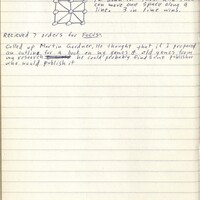 can move one space along a
line. 3 in line wins.
RECIEVED 7 orders for FOCUS.
Called up Martin Gardner. He thought that if I prepared
an outline for a book on my games & old games from
my research he could probably find some publisher
who would publish it